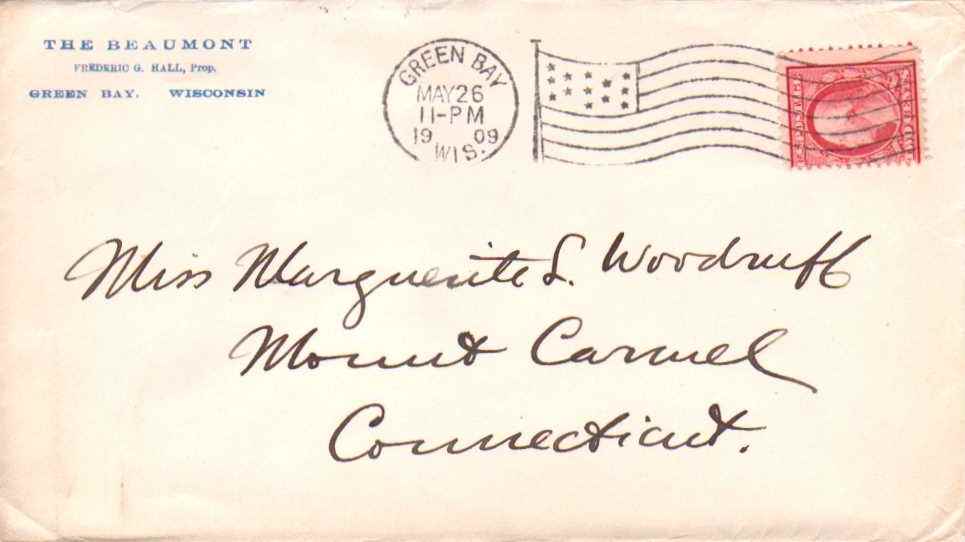 THE BEAUMONT
FREDERIC G. HALL, Prop.
GREEN BAY. WISCONSIN
GREEN BAY
MAY 26
11-PM
19 09
WIS.
Miss Marguerite L. Woodruff
Mount Carmel
Connecticut.